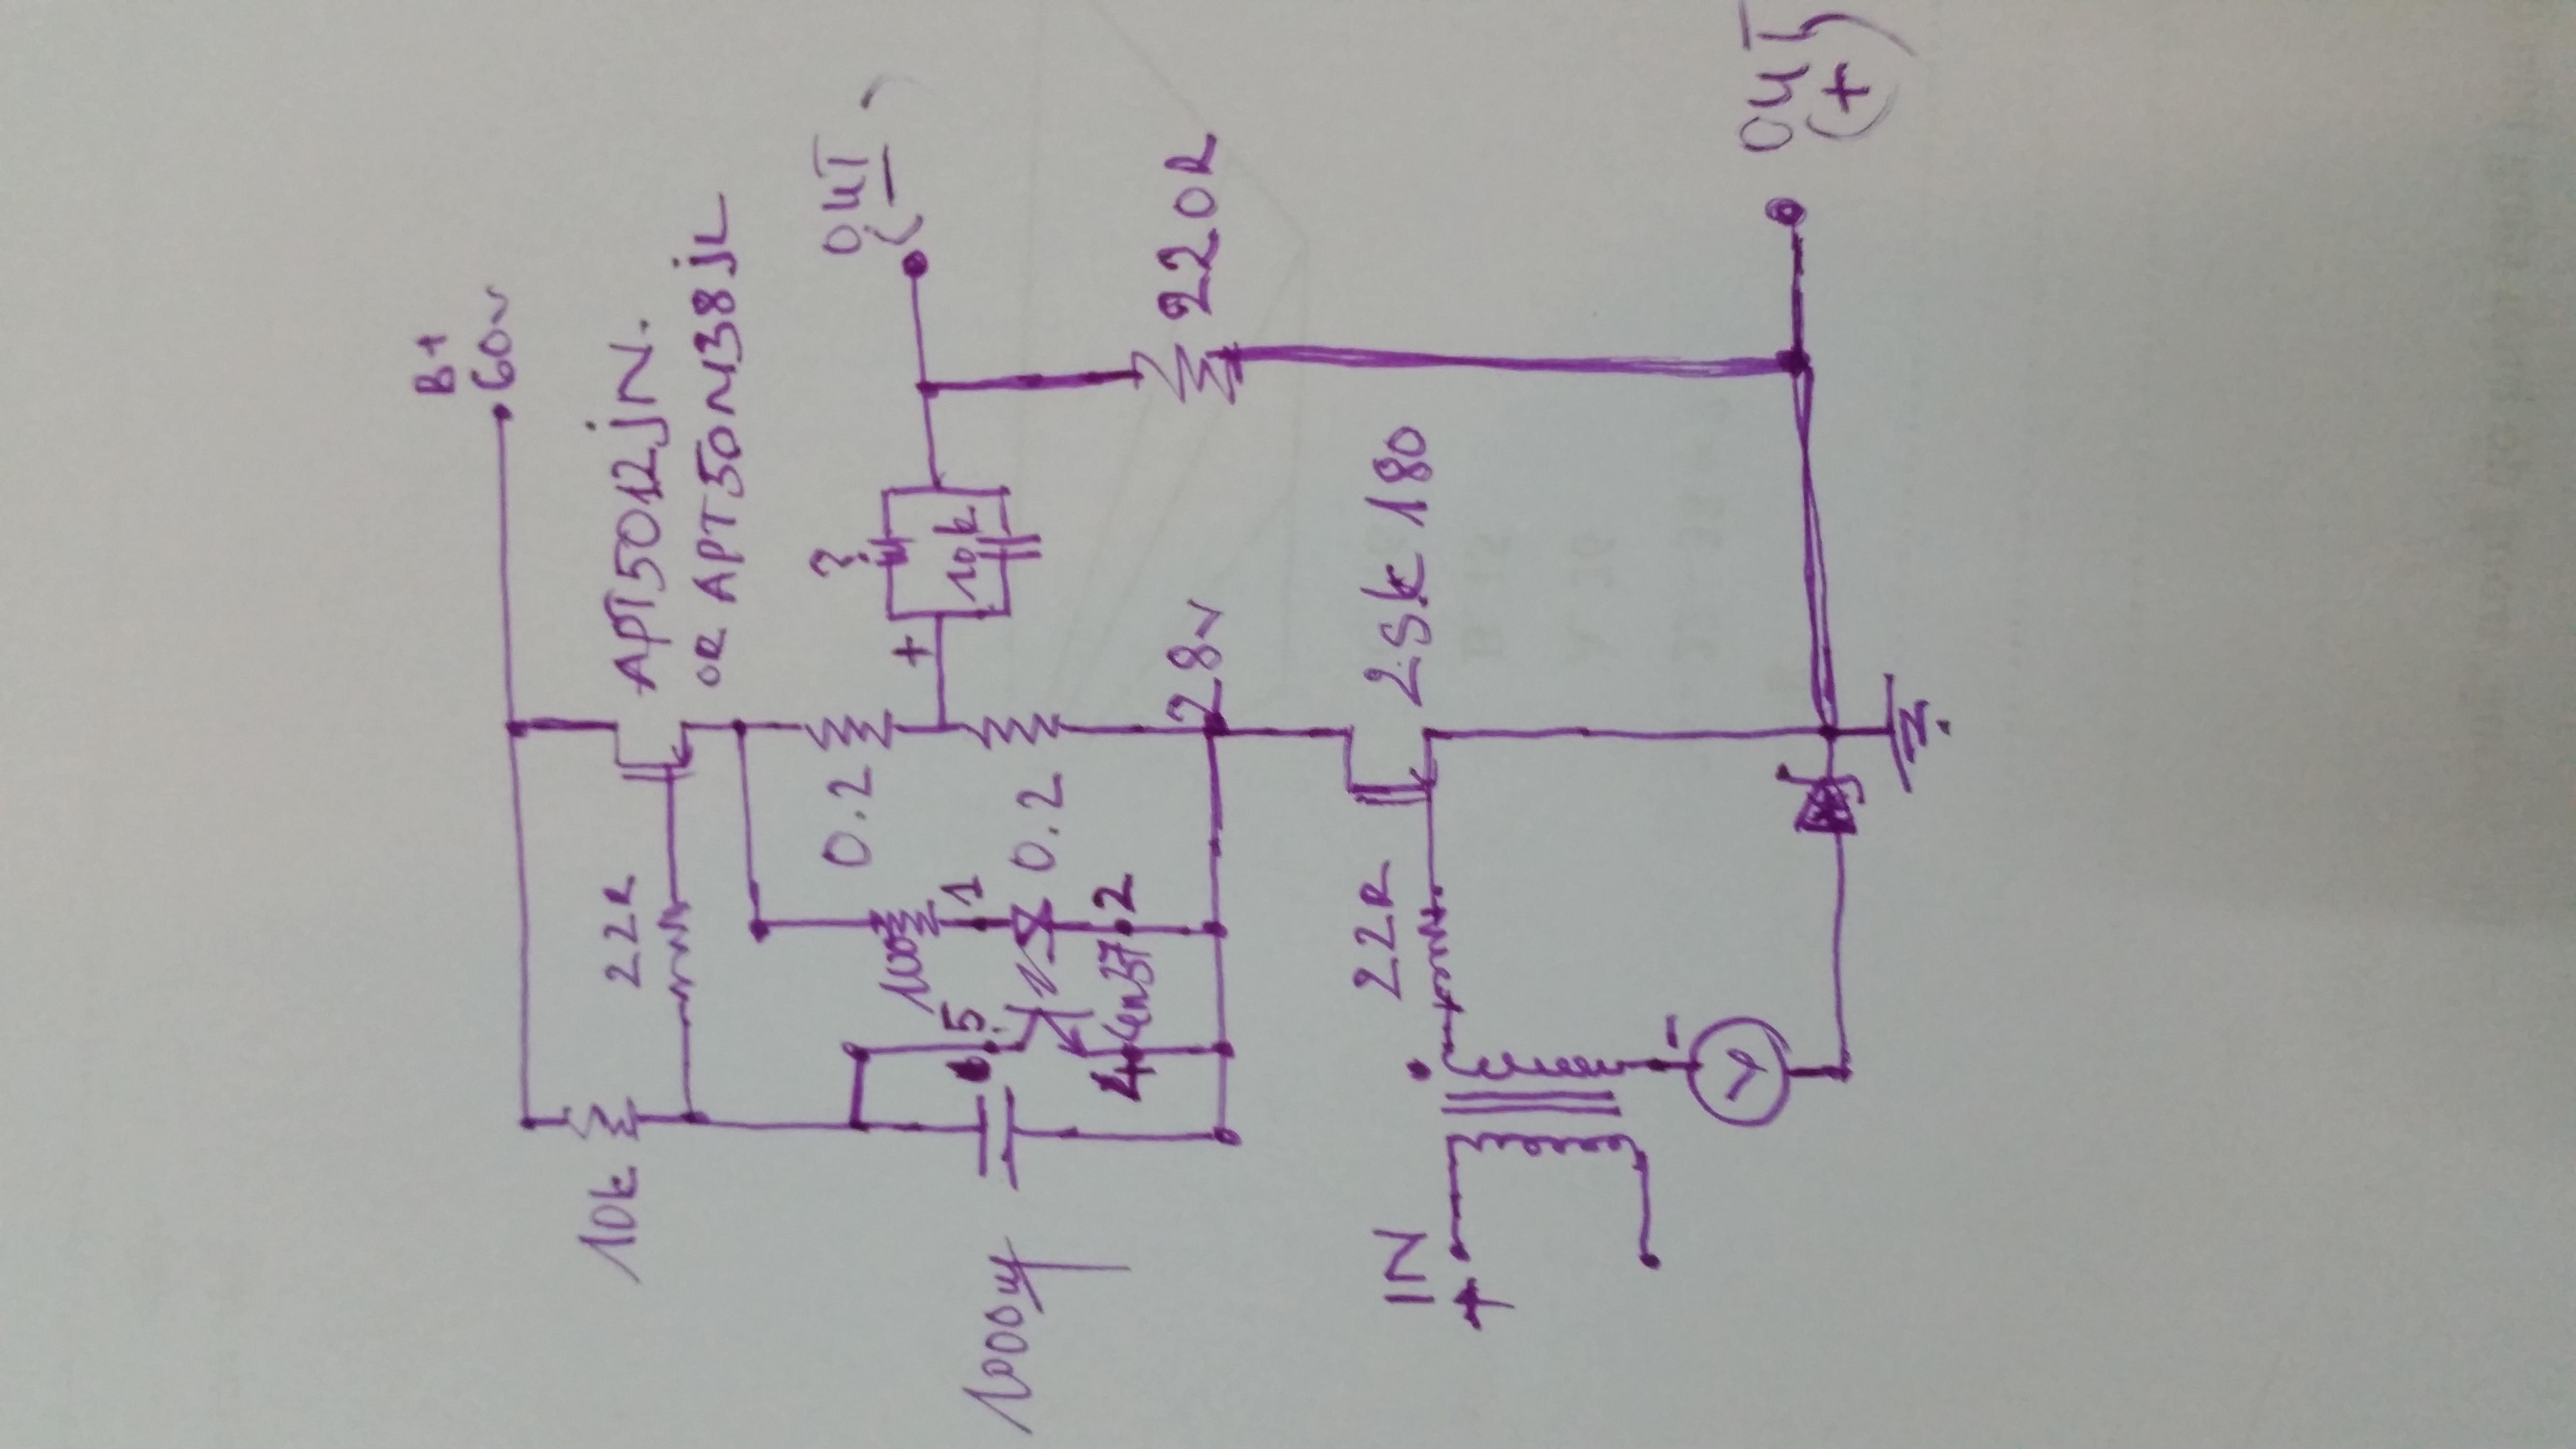 B+
60v
APT5012jN.
OR APT50M38jL
OUT
(-)
22R
10k
0.2
0.2
?
+
10k
220R
100
1
2
5
6
4
4n37
1000µ
28v
2Sk180
22R
IN
+
-
V
OUT
(+)